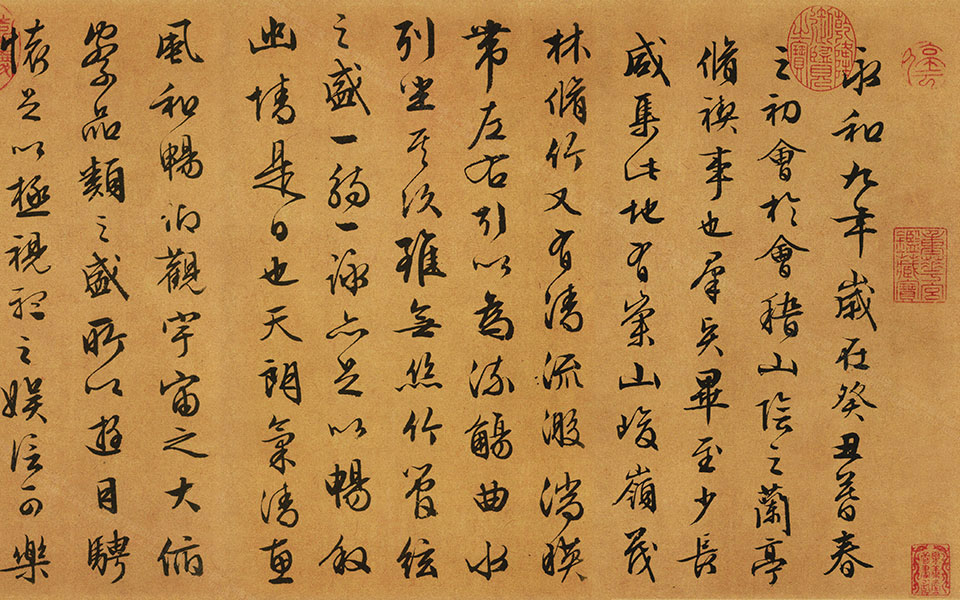 永和九年歲在癸丑暮春
之初會於會稽山陰之蘭亭
脩禊事也羣賢畢至少長
咸集此地有崇山峻嶺茂
林脩竹又有清流激湍暎
帶左右引以為流觴曲水
列坐其次雖無絲竹管絃
之盛一觴一詠亦足以暢敘
幽情是日也天朗氣清惠
風和暢仰觀宇宙之大俯
察品類之盛所以遊目騁
懷足以極視聽之娛信可樂
乾隆御覽之寶
重華宮鑑藏寶